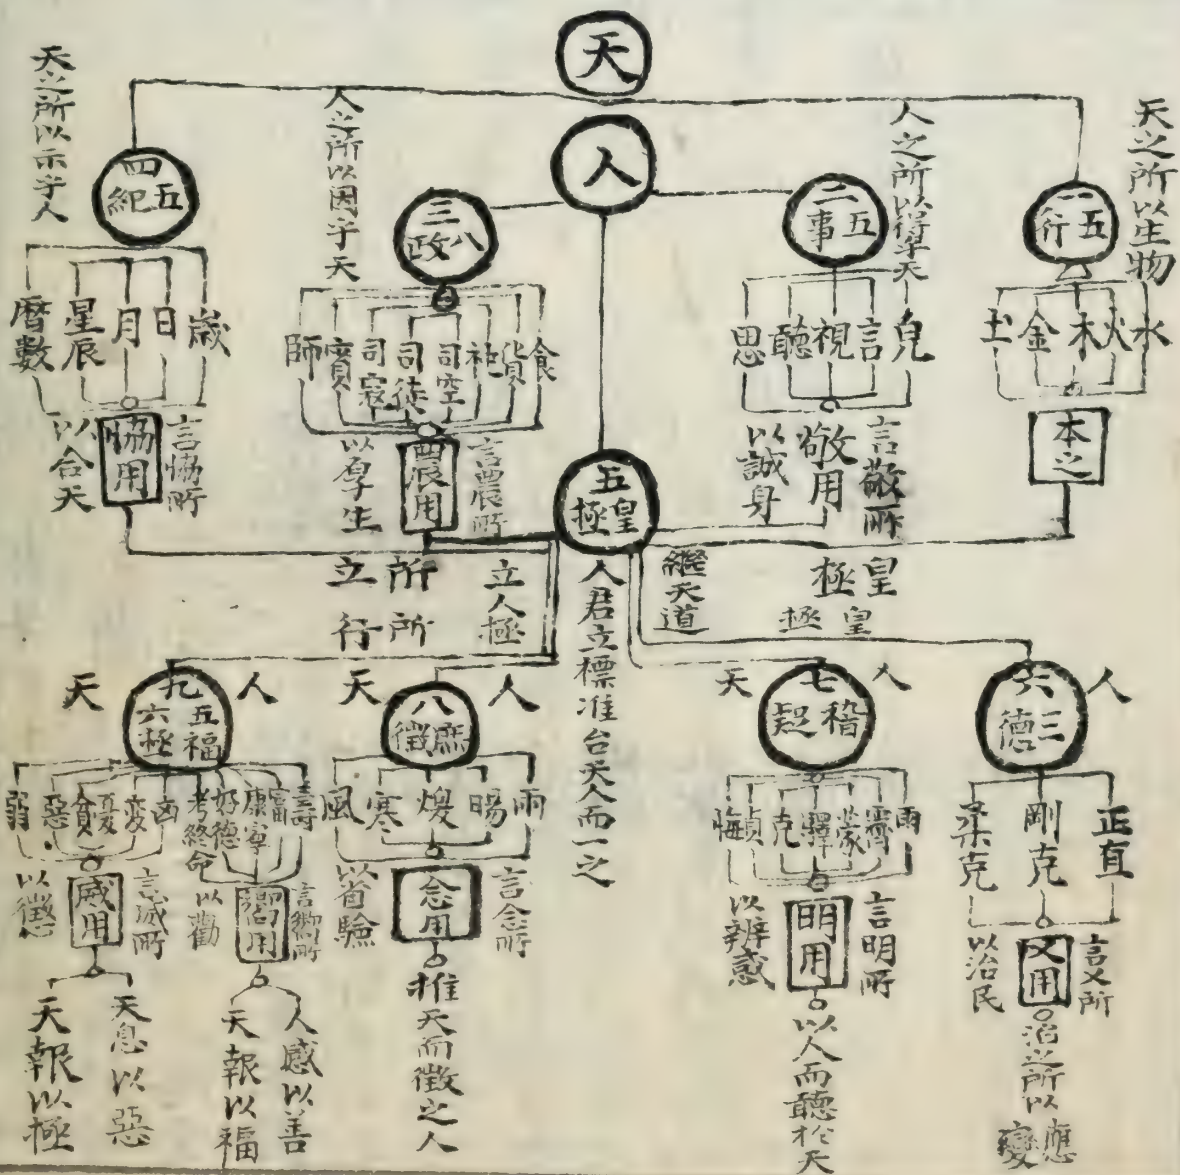 天
人
天之所以生物
一五行
水
火
木
金
土
本之
人之所以得乎天
二五事
皃
言
視
聽
思
言敬所
敬用
以誠身
人之所以因乎天
三八政
食
貨
祀
司空
司徒
司寇
賓
師
言農所
農用
以厚生
天之所以示乎人
四五紀
歲
日
月
星辰
曆數
言恊所
恊用
以合天
五皇極
皇極
皇極
繼天道
人君立標准台天人而一之
立人極
所立
所行
人
六三德
正直
剛克
柔克
言乂所
乂用
以治民
治之所以應變
人
七稽疑
天
雨
霽
蒙
驛
克
貞
悔
言明所
明用
以辨惑
以人而聽於天
人
八庶徵
天
雨
暘
燠
寒
風
言念所
念用
以省驗
推天而徵之人
人
九五福六極
天
壽
富
康寧
好德
考終命
凶
疾
憂
貧
惡
弱
言嚮所
嚮用
以勸
言威所
威用
以懲
人感以善
天報以福
天息以惡
天報以極